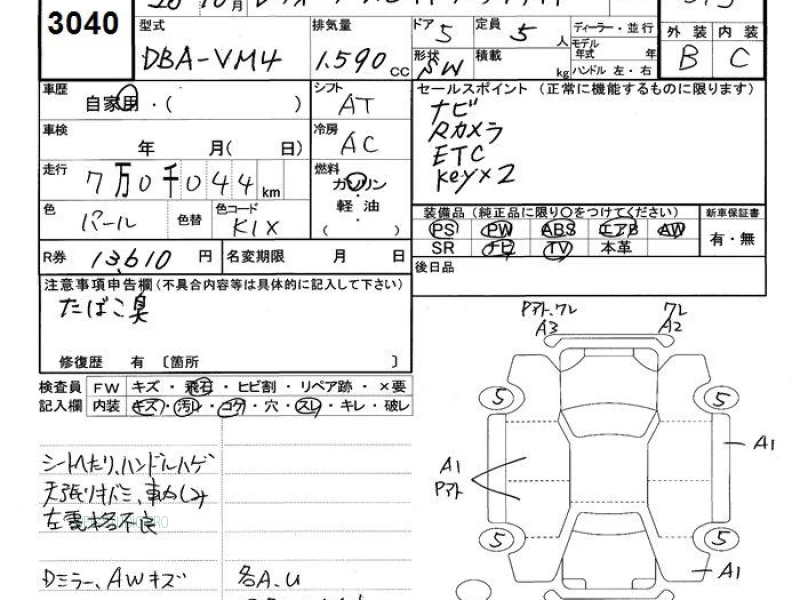 3040
月
型式 DBA-VM4
排気量 1.590 cc
ドア 5
定員 5 人
形状 SW
積載 kg
ディーラー・並行
モデル年式 年
ハンドル 左・右
外装 内装
B C
車歴 自家用・( )
シフト AT
車検 年 月( 日)
冷房 AC
走行 7万0千044km
燃料 ガソリン
軽・油
( )
色 パール 色替
色コード K1X
R券 13,610 円
名変期限 月 日
注意事項申告欄(不具合内容等は具体的に記入して下さい)
たばこ臭
修復歴 有 〔箇所 〕
セールスポイント (正常に機能するものに限ります)
ナビ
Rカメラ
ETC
Key×2
装備品 (純正品に限り○をつけてください)
PS PW ABS エアB AW
SR ナビ TV 本革
新車保証書
有・無
後日品
検査員 FW キズ・飛石・ヒビ割・リペア跡・×要
記入欄 内装 キズ・汚れ・コゲ・穴・スレ・キレ・破レ
シートへたり、ハンドルハゲ
天張りキズミ、車カしみ
左電格不良
Dミラー、AWキズ
各A.U
Pアト、ワレ
A3
ワレ
A2
5 5
A1
A1
Pアト
5 5
A1